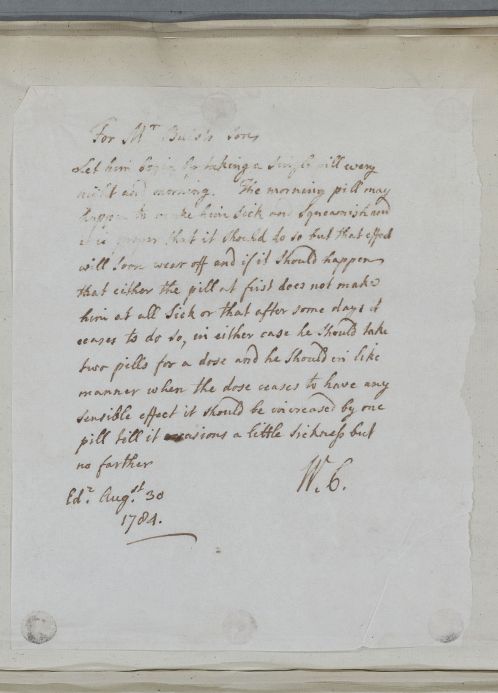 For Mr. Buist's Son,
Let him begin by taking a single pill every
night and morning. The morning pill may
happen to make him sick and squeamish and
it is proper that it should do so but that effect
will soon wear off and if it should happen
that either the pill at first does not make
him at all sick or that after some days it
ceases to do so, in either case he should take
two pills for a dose and he should in like
manner when the dose ceases to have any
sensible effect it should be increased by one
pill till it occasions a little sickness but
no farther
W. C.
Edr. Augst. 30
1784.